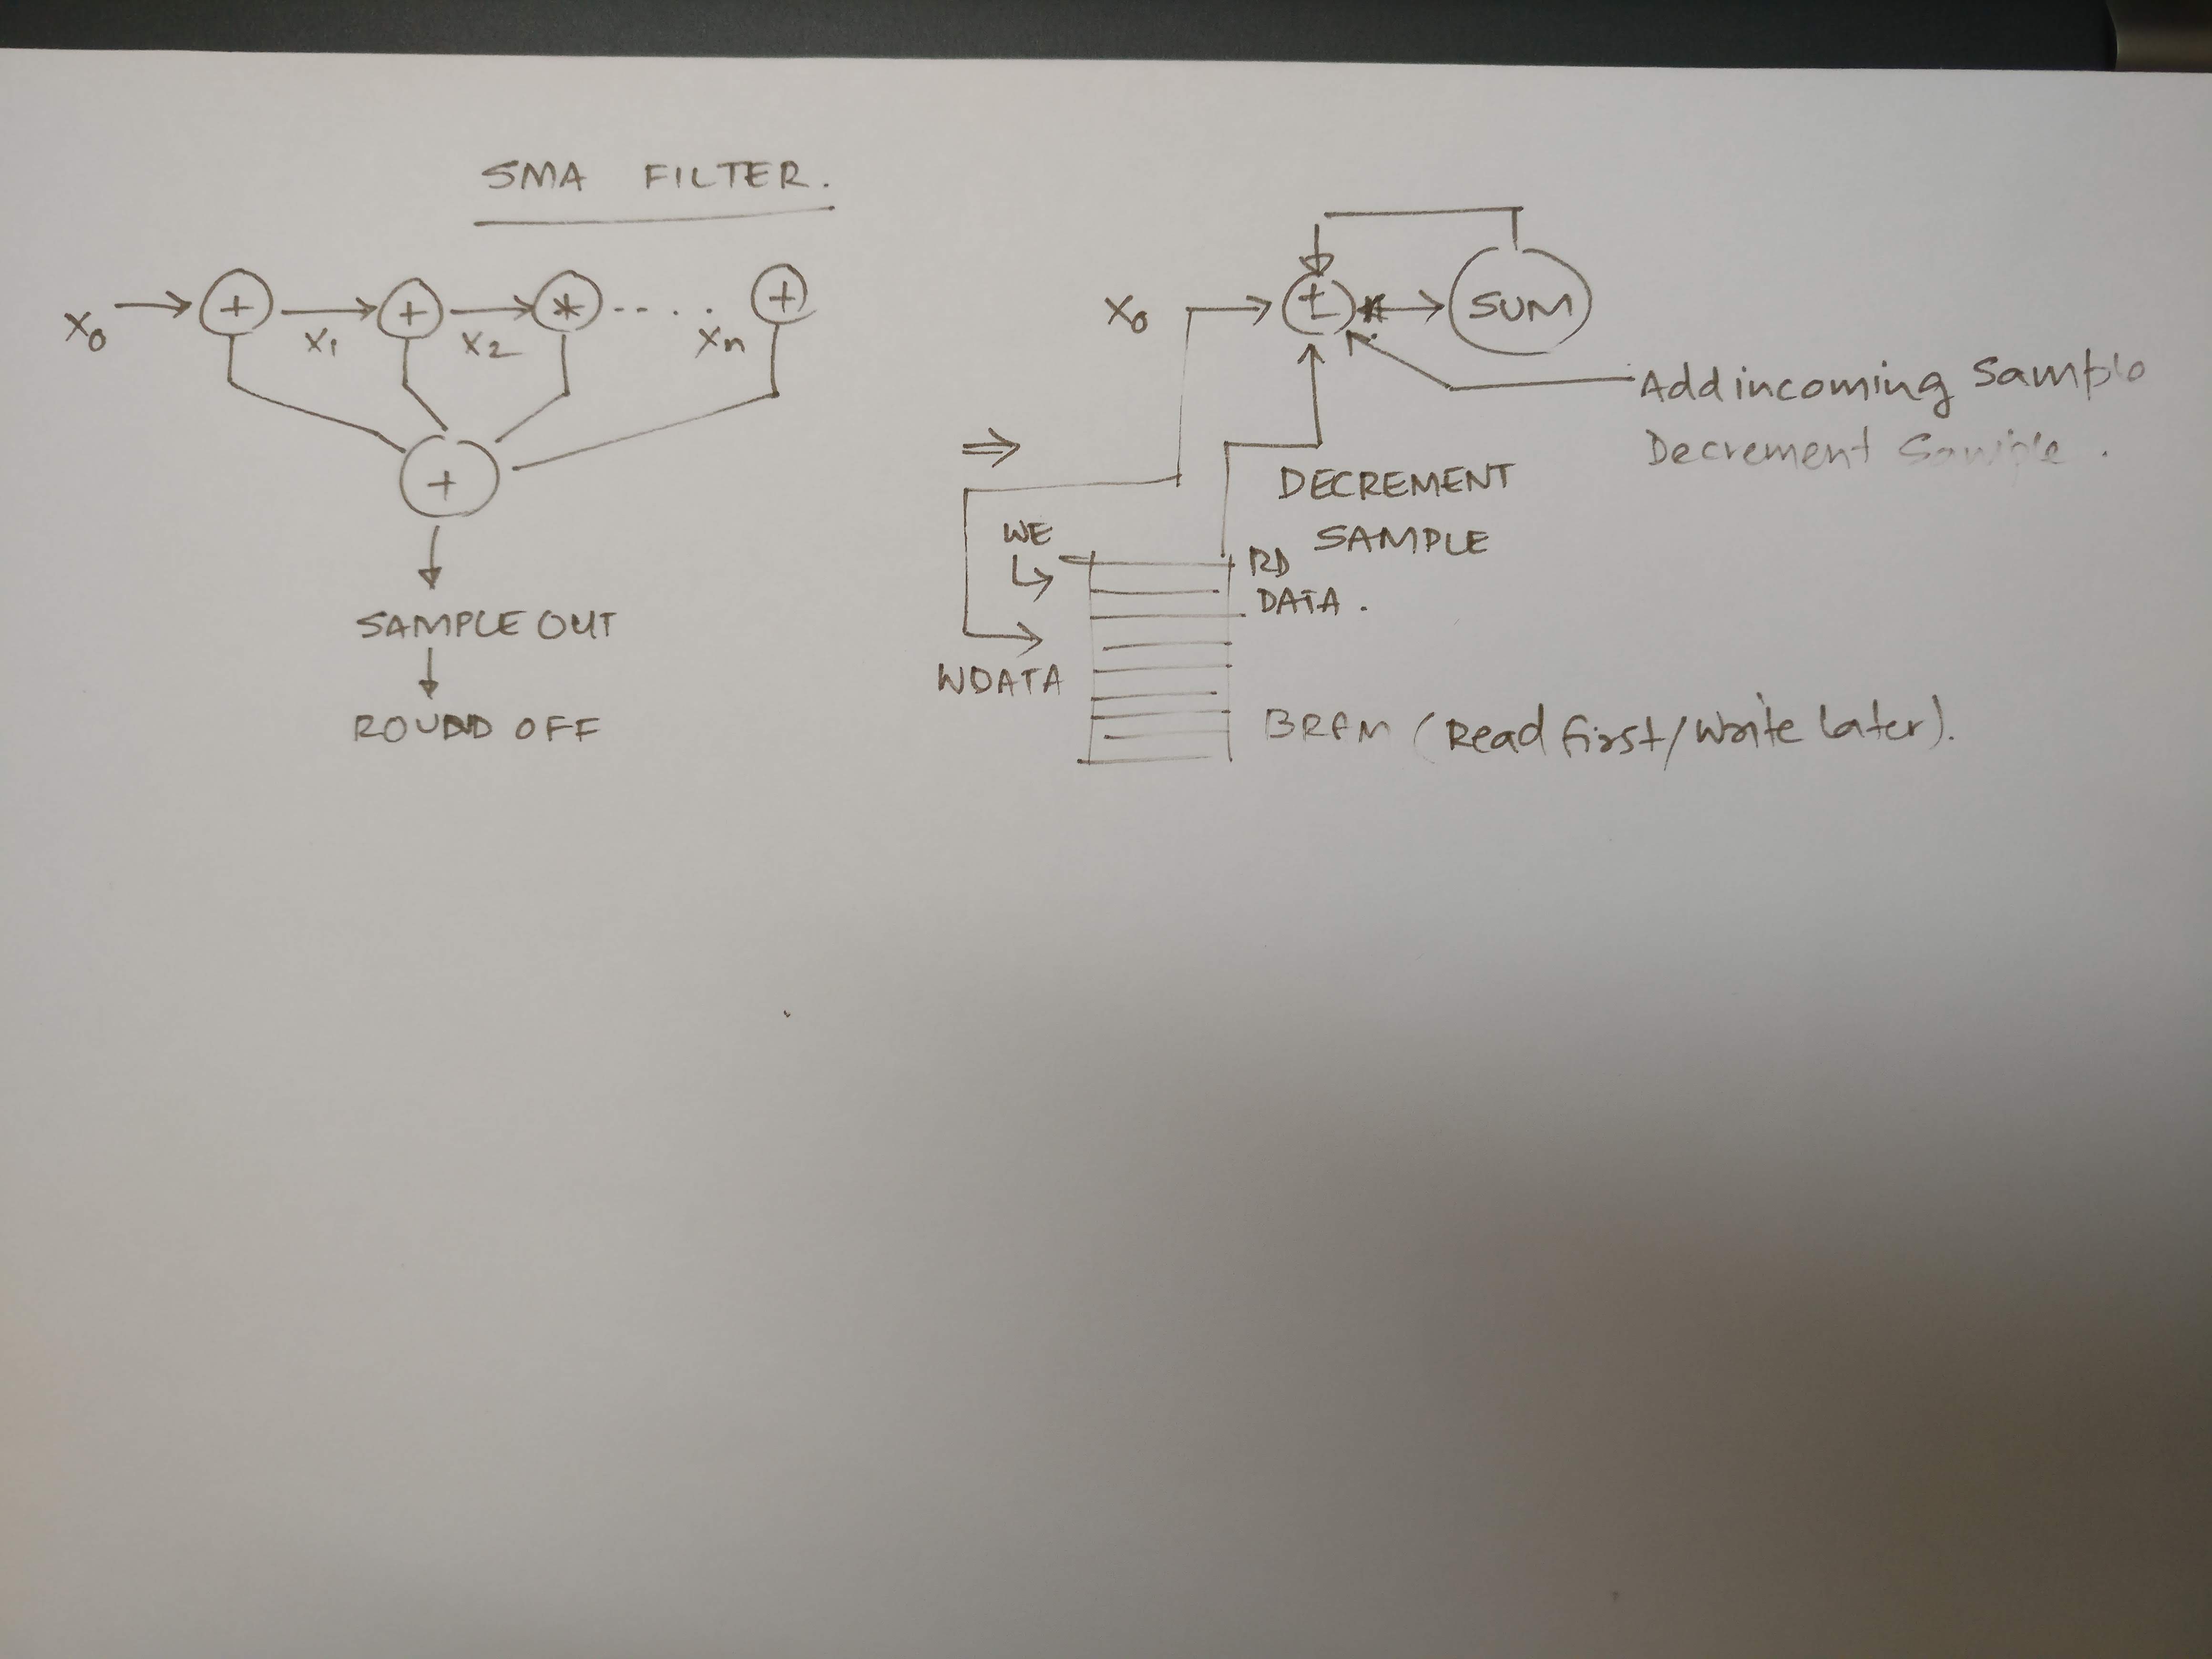 SMA FILTER.
X0 + X1 + X2 * .... Xn +
+
SAMPLE OUT
ROUND OFF
X0 ± SUM
Add incoming Sample
Decrement Sample.
DECREMENT
SAMPLE
WE
RD
DATA.
WDATA
BRAM (Read first/Write later).